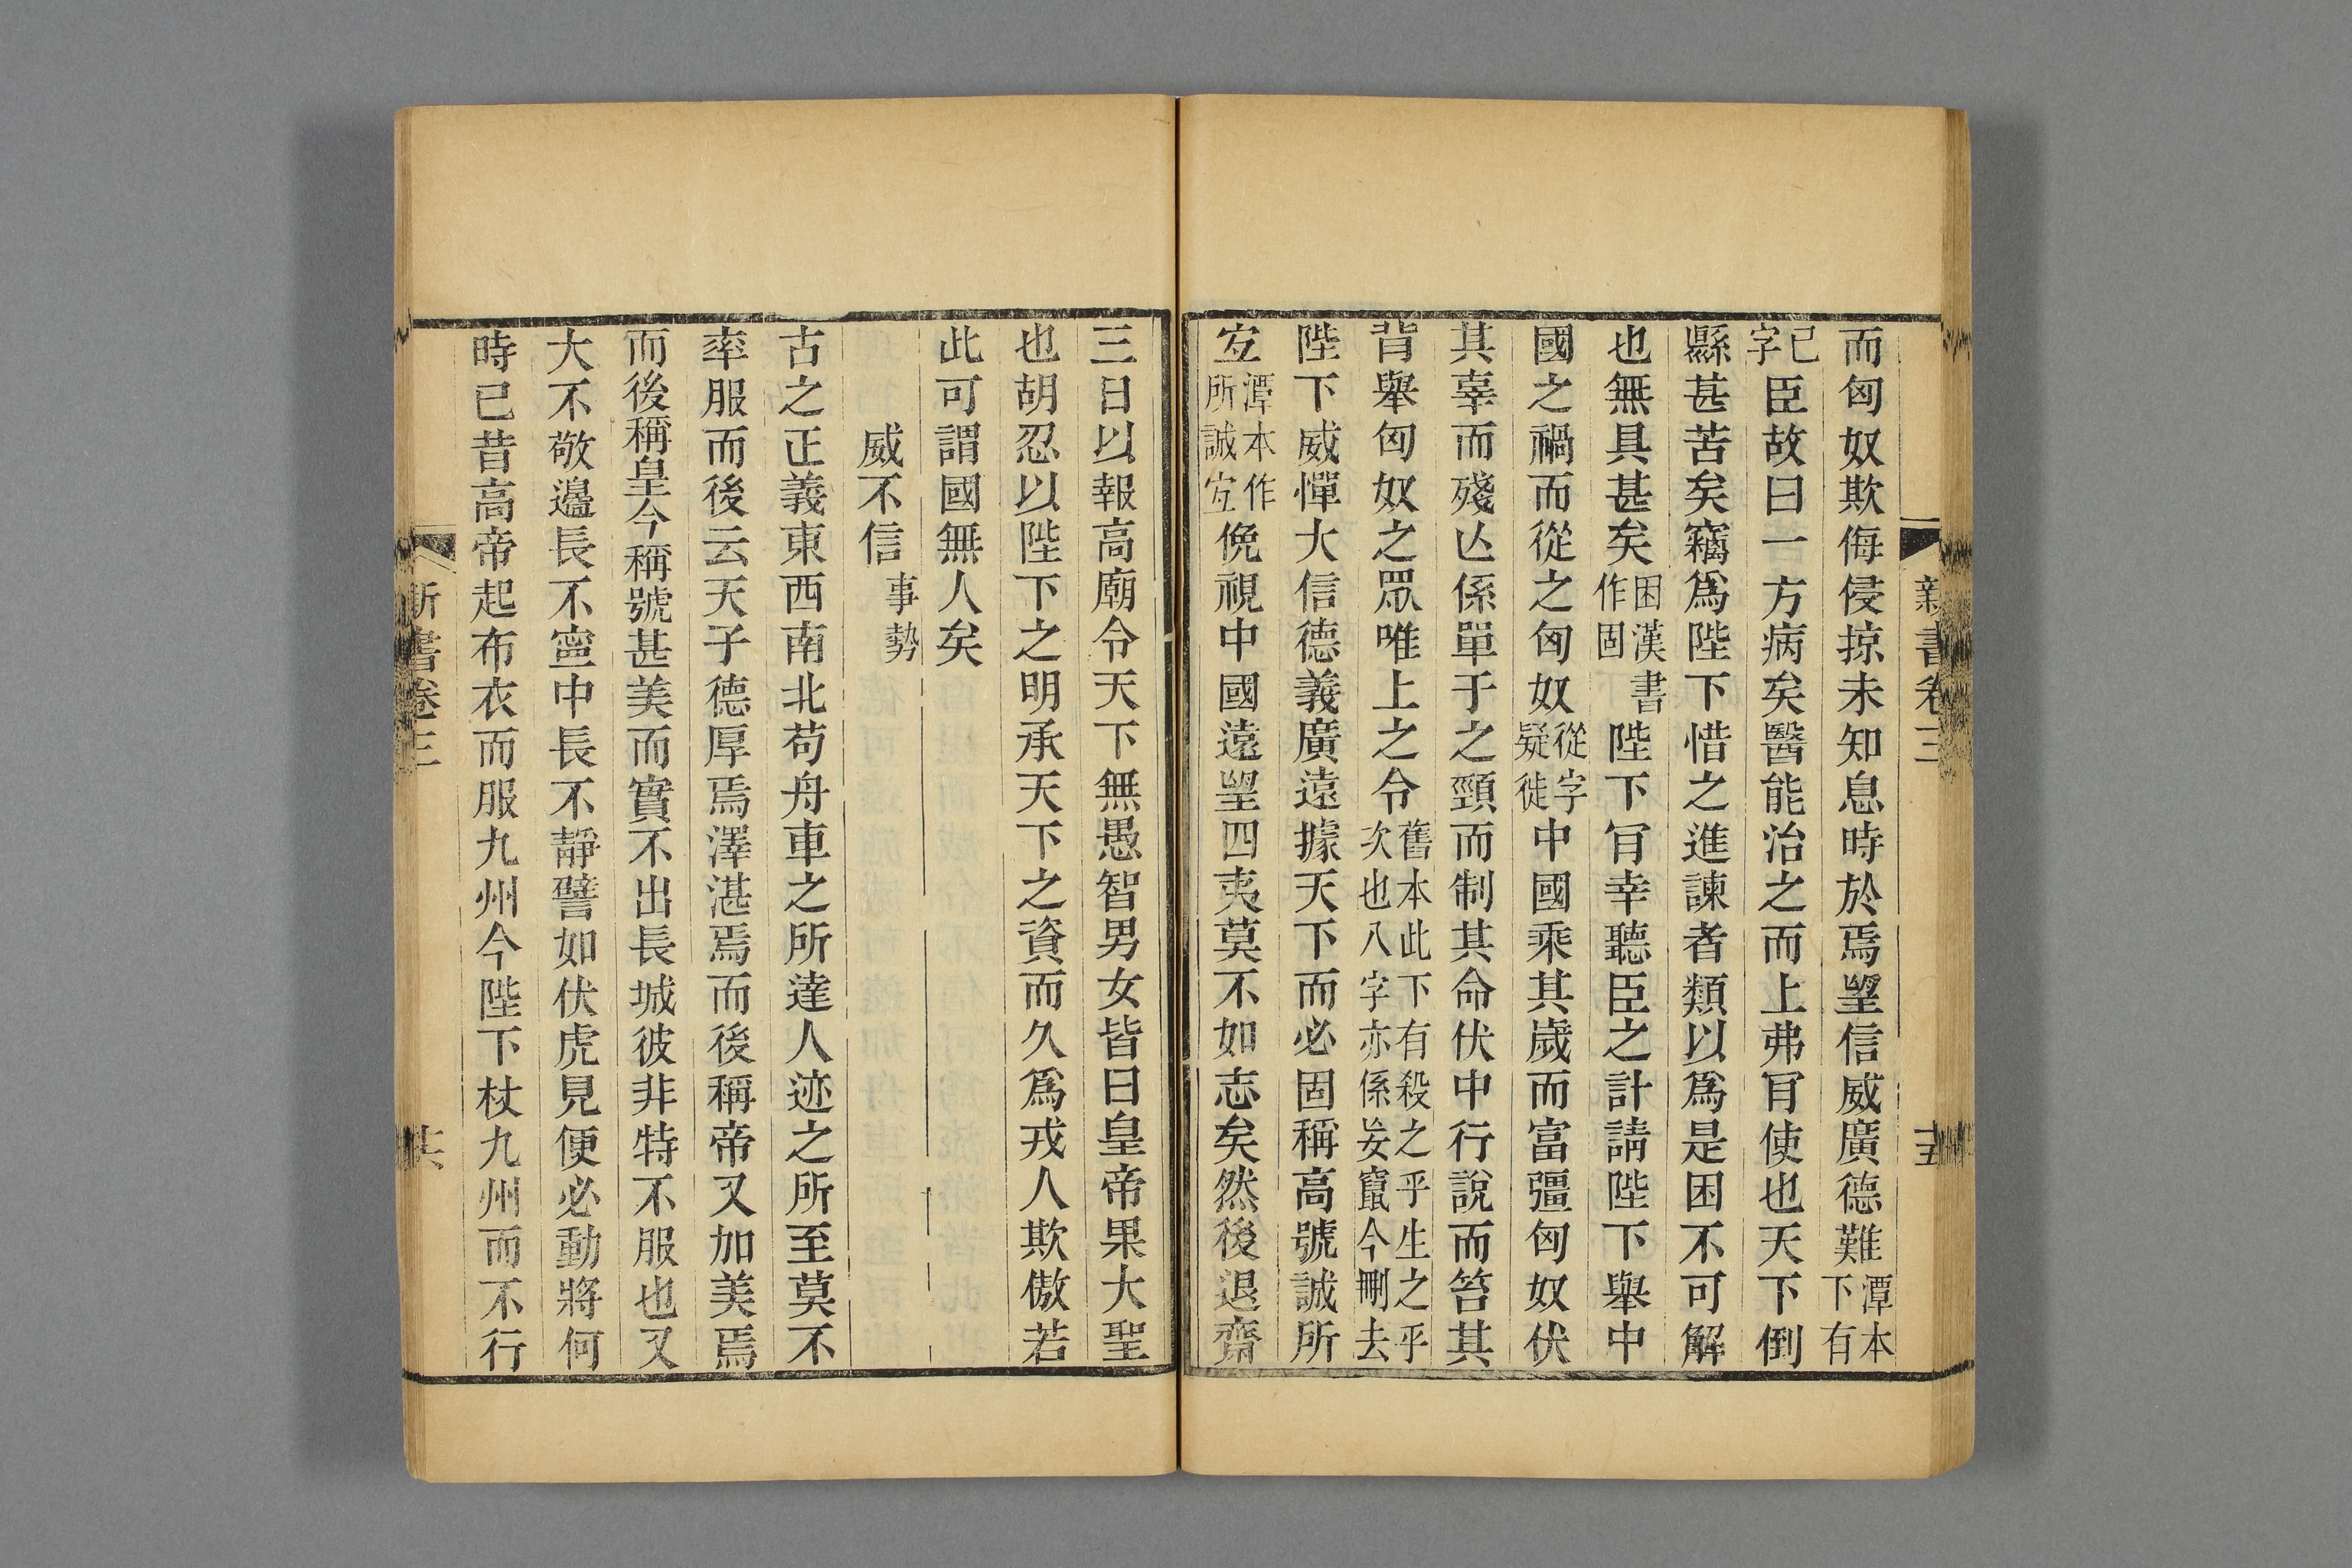 新書卷三
十五
而匈奴欺侮侵掠未知息時於焉望信威廣德難潭本下有
已字臣故曰一方病矣醫能治之而上弗肎使也天下倒
縣甚苦矣竊爲陛下惜之進諫者類以爲是困不可解
也無具甚矣困漢書作固陛下肎幸聽臣之計請陛下舉中
國之禍而從之匈奴從字疑徙中國乘其歲而富彊匈奴伏
其辜而殘亾係單于之頸而制其命伏中行說而笞其
背舉匈奴之眾唯上之令舊本此下有殺之乎生之乎次也八字亦係妄竄今刪去
陛下威憚大信德義廣遠據天下而必固稱高號誠所
宐潭本作所誠宐俛視中國遠望四夷莫不如志矣然後退齋
三日以報高廟令天下無愚智男女皆曰皇帝果大聖
也胡忍以陛下之明承天下之資而久爲戎人欺傲若
此可謂國無人矣
威不信事勢
古之正義東西南北苟舟車之所達人迹之所至莫不
率服而後云天子德厚焉澤湛焉而後稱帝又加美焉
而後稱皇今稱號甚美而實不出長城彼非特不服也又
大不敬邊長不寧中長不靜譬如伏虎見便必動將何
時已昔高帝起布衣而服九州今陛下杖九州而不行
新書卷三
共